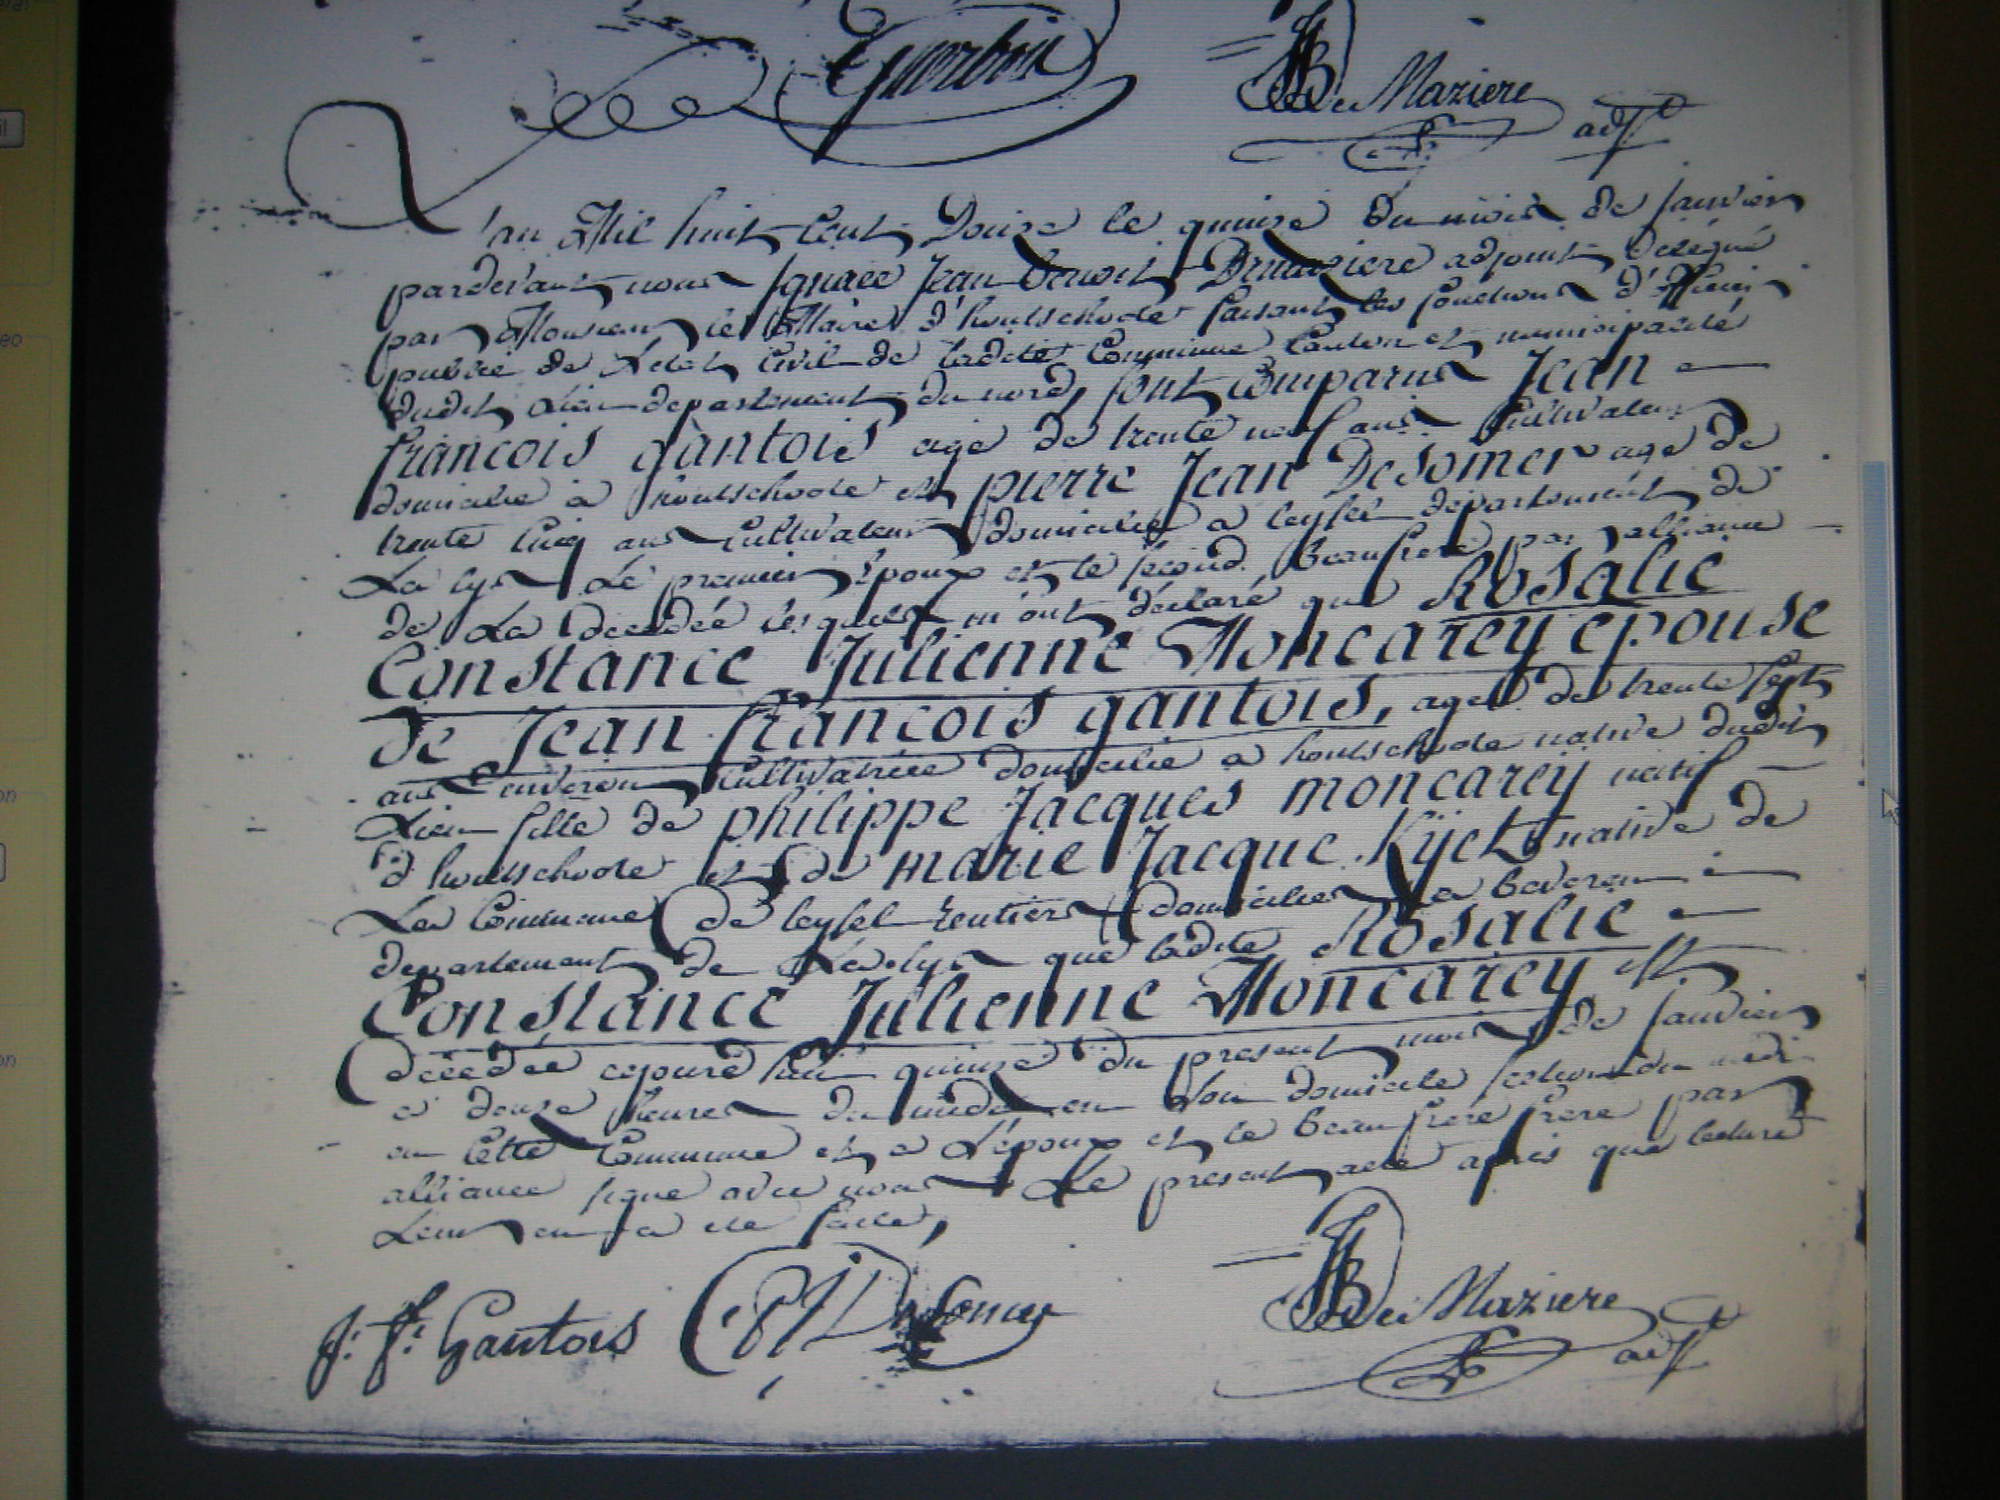 Guerbin
De Maziere
adjt
L'an Mil huit Cent Douze le quinze du mois de Janvier
pardevant nous Ignace Jean Benoit Demaziere adjoint délégué
par Monsieur le Maire d'houtschoote faisant les fonctions d'officier
public de L'etat Civil de ladite Commune Canton et municipalité
dudit Lieu departement du nord, sont Comparus Jean
francois gantois agé de trente neuf ans Cultivateur
domicilié à houtschoote et pierre Jean DeSomer agé de
trente Cinq ans Cultivateur domicilié a leysel département de
La lys Le premier Époux et le sécond Beaufrere par alliance
de La Décédée lesquels m'ont déclaré que Rosalie
Constance Julienne Moncarey epouse
de Jean francois gantois, agée de trente sept
ans environ Cultivatrice domicilie a houtschoote native dudit
Lieu fille de philippe Jacques moncarey natif
d'houtschoote et de marie Jacque Kyck native de
La Commune de leysel rentiers domiciliés a beveren
departement de La lys que ladite Rosalie
Constance Julienne Moncarey est
décédée cejourd'hui quinze du present mois de Janvier
a douze heures du midi en Son domicile section du midi
en Cette Commune et a L'époux et le beau frere frere par
alliance signé avec nous Le present acte aprés que lecture
Leur en a été faite,
J: f: Gantois
PJ DeSomer
De Maziere
adjt